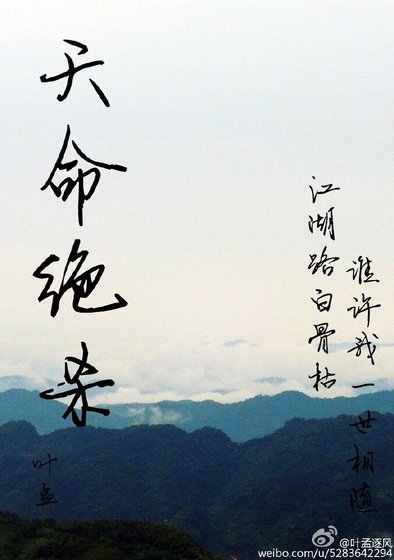 天命绝杀
叶孟
江湖路白骨枯
谁许我一世相随
@叶孟逐风
weibo.com/u/5283642294